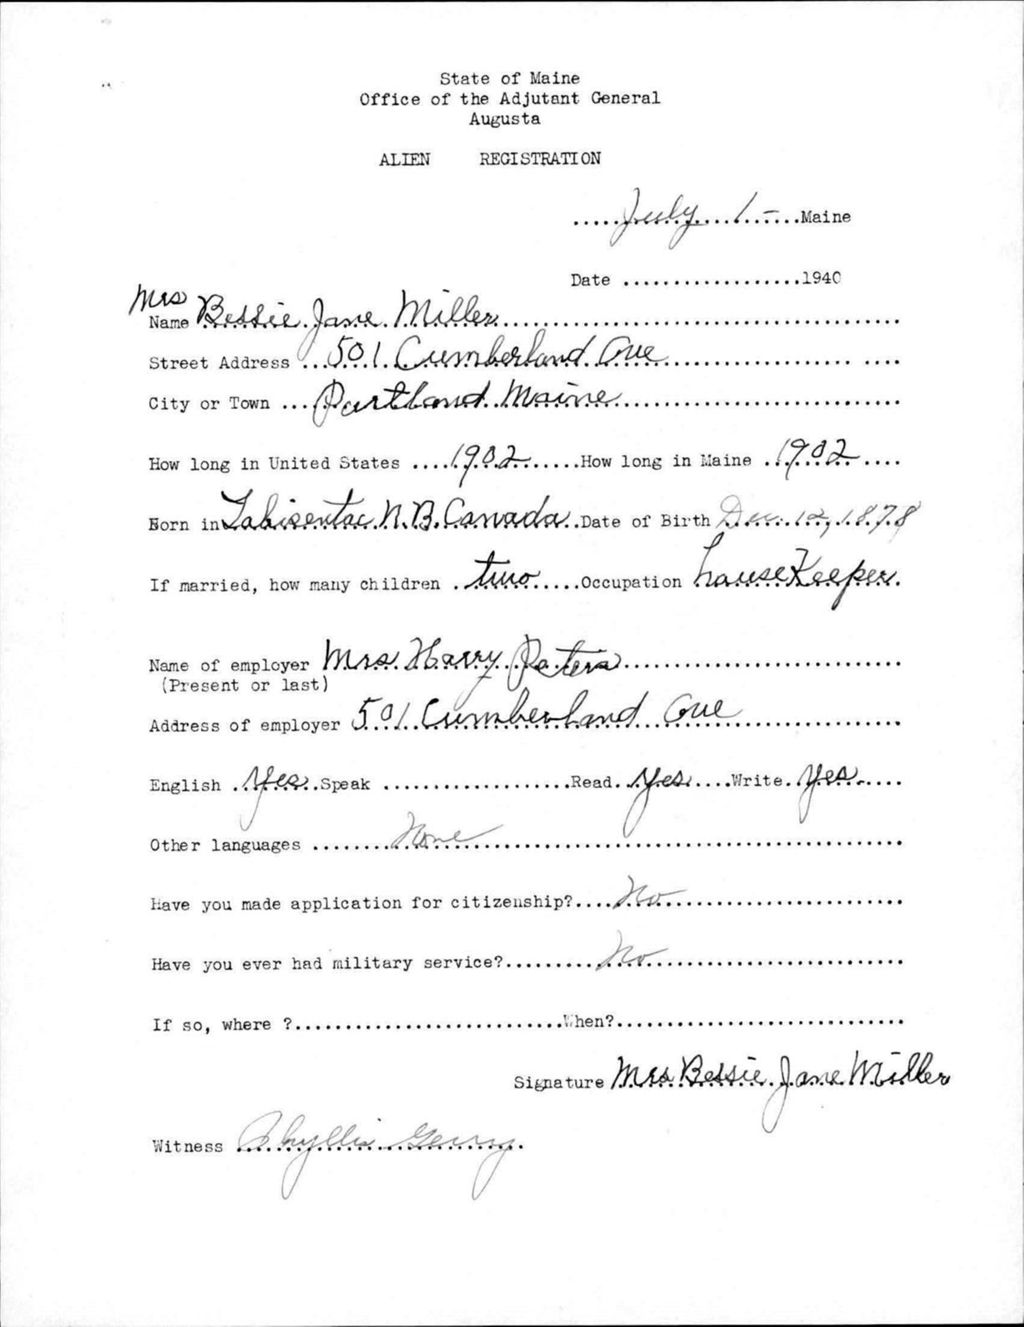 State of Maine
Office of the Adjutant General
Augusta
ALIEN REGISTRATION
.....July....1-.....Maine
Date ..................1940
Mrs
Name Bessie Jane Miller
Street Address ...501 Cumberland Ave
City or Town ...Portland Maine
How long in United States ....1902......How long in Maine ..1902....
Born in Tabisentac N.B. Canada..Date of Birth Dec. 12, 1878
If married, how many children .two.....Occupation houseKeeper.
Name of employer Mrs. Harry Peters
(Present or last)
Address of employer 501 Cumberland Ave
English .Yes..Speak ...................Read..Yes....Write..Yes.....
Other languages ........None
Have you made application for citizenship?....No
Have you ever had military service?.........No
If so, where ?..........................When?............................
Signature Mrs Bessie Jane Miller
Witness Phyllis Gerry